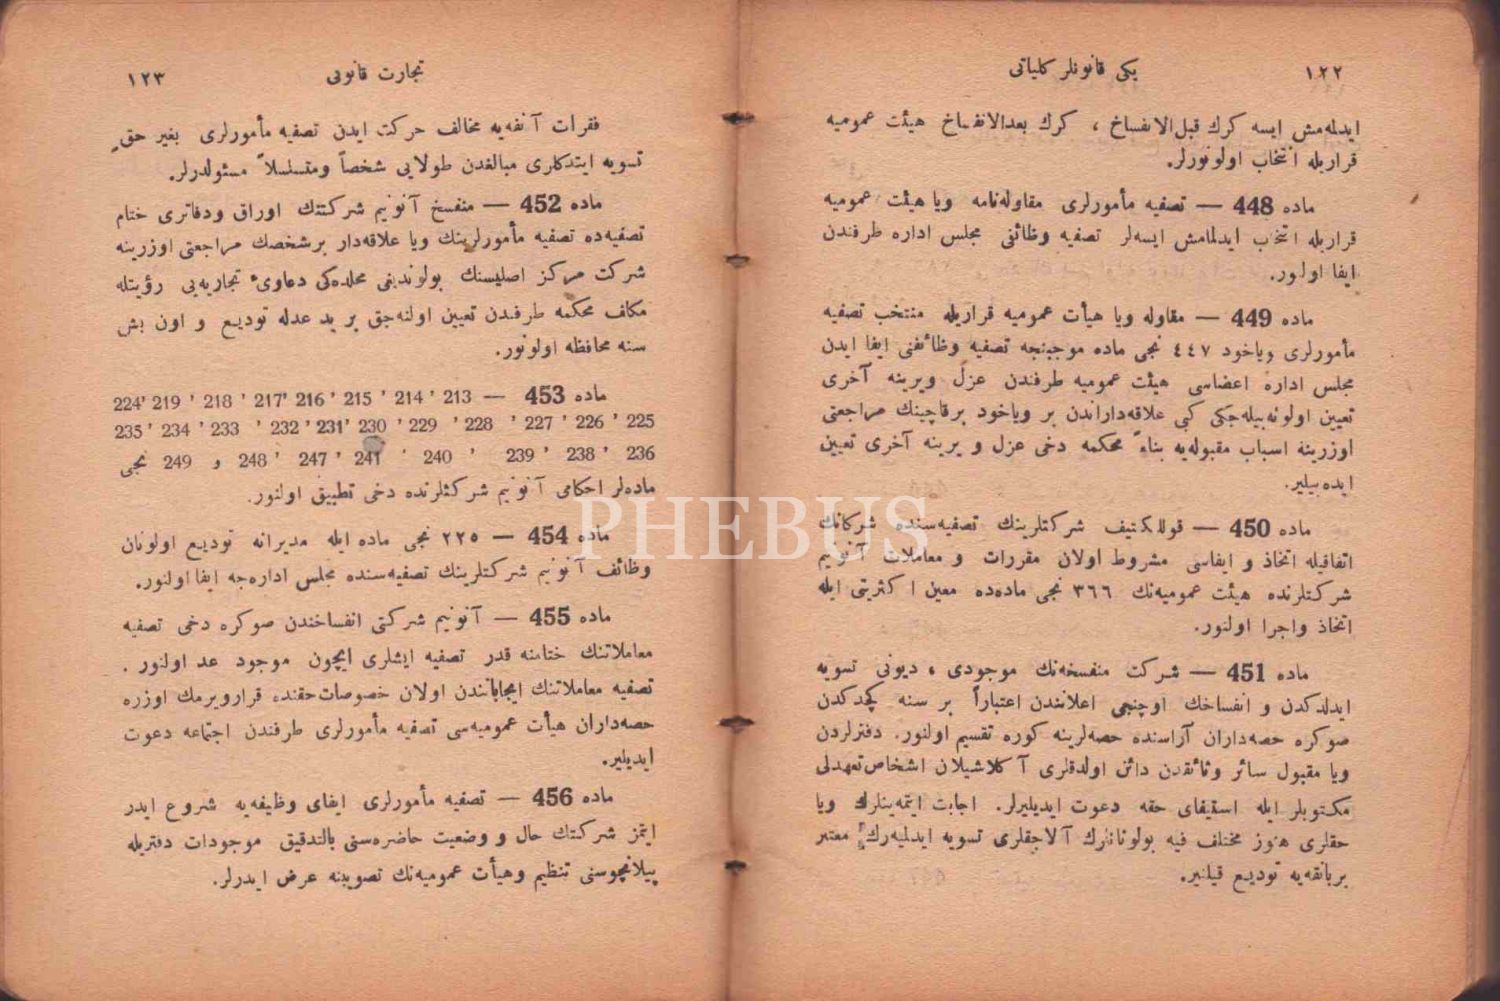 ١٢٢
یكی قانونلر كلیاتی
ایدلمه‌مش ایسه كرك قبل‌الانفساخ ، كرك بعدالانفساخ هیئت عمومیه
قراریله انتخاب اولونورلر.
ماده 448 — تصفیه مأمورلری مقاوله‌نامه ویا هیئت عمومیه
قراریله انتخاب ایدلمامش ایسه‌لر تصفیه وظائفی مجلس اداره طرفندن
ایفا اولور.
ماده 449 — مقاوله ویا هیأت عمومیه قراریله منتخب تصفیه
مأمورلری ویاخود ٤٤٧ نجی ماده موجبنجه تصفیه وظائفنی ایفا ایدن
مجلس اداره اعضاسی هیئت عمومیه طرفندن عزل ویرینه آخری
تعیین اولونه‌بیله‌جكی كبی علاقه‌داراندن بر ویاخود برقاچینك مراجعتی
اوزرینه اسباب مقبوله‌یه بناءً محكمه دخی عزل و یرینه آخری تعیین
ایده‌بیلیر.
ماده 450 — قوللكتیف شركتلرینك تصفیه‌سنده شركانك
اتفاقیله اتخاذ و ایفاسی مشروط اولان مقررات و معاملات آنونیم
شركتلرنده هیئت عمومیه‌نك ٣٦٦ نجی ماده‌ده معین اكثریتی ایله
اتخاذ واجرا اولنور.
ماده 451 — شركت منفسخه‌نك موجودی ، دیونی تسویه
ایدلدكدن و انفساخك اوچنجی اعلانندن اعتباراً بر سنه كچدكدن
صوكره حصه‌داران آراسنده حصه‌لرینه كوره تقسیم اولنور. دفترلردن
ویا مقبول سائر وثائقدن دائن اولدقلری آكلاشیلان اشخاص‌تعهدلی
مكتوبلر ایله استیفای حقه دعوت ایدیلیرلر. اجابت ایتمه‌ینلرك ویا
حقلری هنوز مختلف فیه بولونانلرك آلاجقلری تسویه ایدلمیه‌رك معتبر
بربانقه‌یه تودیع قیلنیر.
تجارت قانونی
١٢٣
فقرات آنفه‌یه مخالف حركت ایدن تصفیه مأمورلری بغیر حق
تسویه ایتدكلری مبالغدن طولایی شخصاً ومتسلسلاً مسئولدرلر.
ماده 452 — منفسخ آنونیم شركتنك اوراق ودفاتری ختام
تصفیه‌ده تصفیه مأمورلرینك ویا علاقه‌دار برشخصك مراجعتی اوزرینه
شركت مركز اصلیسنك بولوندیغی محلده‌كی دعاویٔ تجاریه‌یی رؤیتله
مكلف محكمه طرفندن تعیین اولنه‌جق بر ید عدله تودیع و اون بش
سنه محافظه اولونور.
ماده 453 — 213 ' 214 ' 215 ' 216 '217 ' 218 ' 219 '224
225 ' 226 ' 227 ' 228 ' 229 ' 230 '231 ' 232 ' 233 ' 234 ' 235
236 ' 238 ' 239 ' 240 ' 241 ' 247 ' 248 و 249 نجی
ماده‌لر احكامی آنونیم شركتلرنده دخی تطبیق اولنور.
ماده 454 — ٢٢٥ نجی ماده ایله مدیرانه تودیع اولونان
وظائف آنونیم شركتلرینك تصفیه‌سنده مجلس اداره‌جه ایفا اولنور.
ماده 455 — آنونیم شركتی انفساخندن صوكره دخی تصفیه
معاملاتنك ختامنه قدر تصفیه ایشلری ایچون موجود عد اولنور .
تصفیه معاملاتنك ایجاباتندن اولان خصوصات‌حقنده قرارویرمك اوزره
حصه‌داران هیأت عمومیه‌سی تصفیه مأمورلری طرفندن اجتماعه دعوت
ایدیلیر.
ماده 456 — تصفیه مأمورلری ایفای وظیفه‌یه شروع ایدر
ایتمز شركتك حال و وضعیت حاضره‌سنی بالتدقیق موجودات دفتریله
پیلانچوسنی تنظیم وهیأت عمومیه‌نك تصویبنه عرض ایدرلر.
PHEBUS